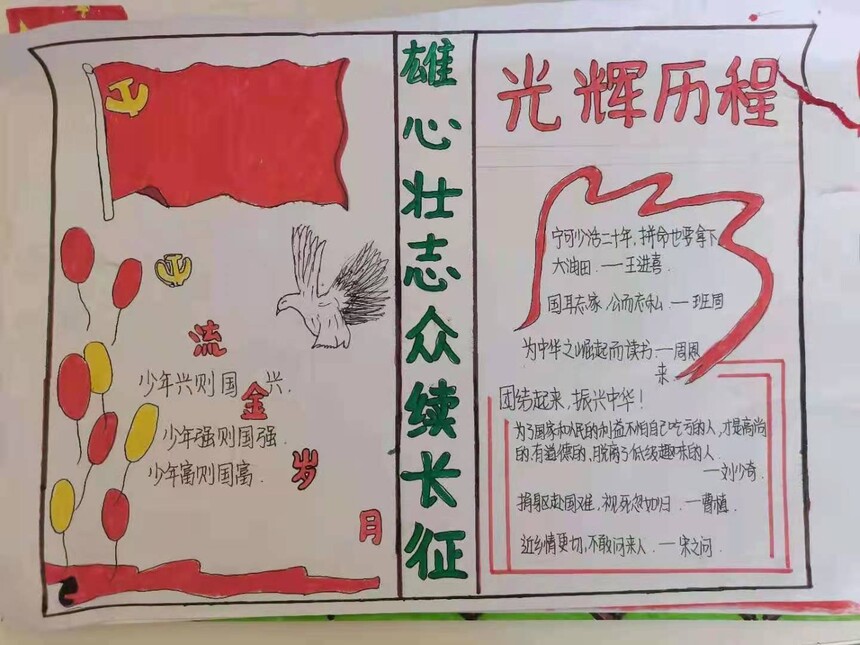 流金岁月
少年兴则国兴.
少年强则国强.
少年富则国富.
雄心壮志众续长征
光辉历程
宁可少活二十年,拼命也要拿下
大油田.——王进喜.
国耳忘家,公而忘私.——班周
为中华之崛起而读书.—周恩
来.
团结起来,振兴中华!
为了国家和人民的利益不怕自己吃亏的人,才是高尚
的,有道德的,脱离了低级趣味的人.
—刘少奇.
捐躯赴国难,视死忽如归.—曹植.
近乡情更切,不敢问来人.—宋之问.